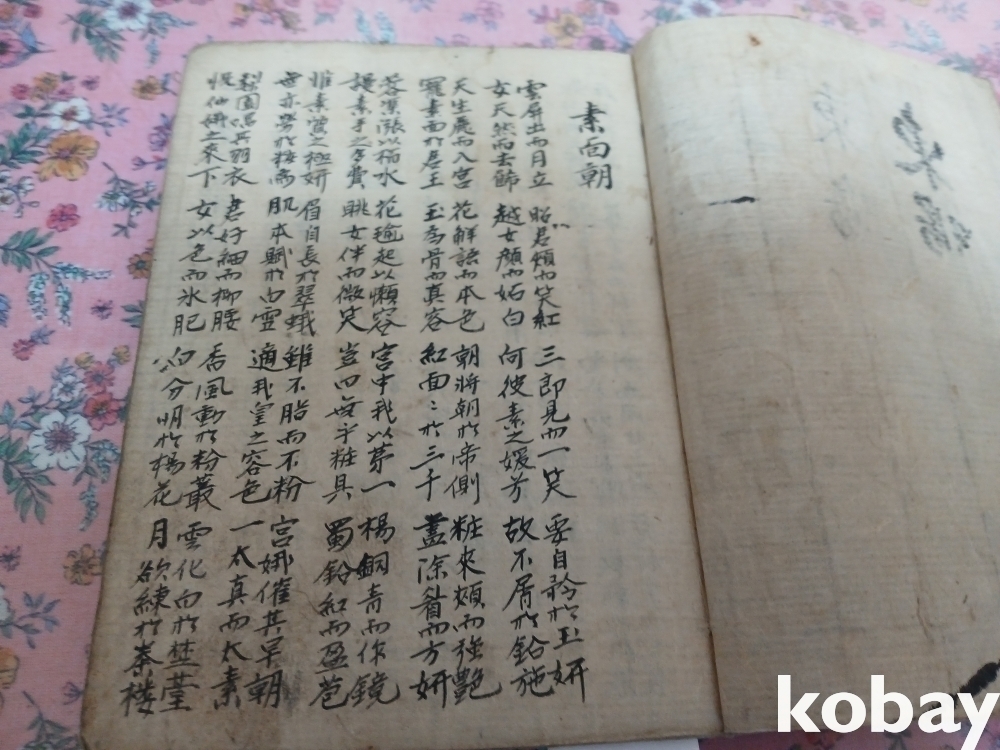 素面朝
雲屏出而月立
女天然而去飾
昭君頩而笑紅
越女顔而妬白
三郎見而一笑
何彼素之媛兮
要自矜於玉姸
故不屑於鉛施
天生麗而入宮
羅素面於君王
花解語而本色
玉爲骨而真容
朝將朝於帝側
紅面〻於三千
粧來頰而強艶
盡除眉而方姸
漲以楊水
謾素手之虛費
花起以懶容
眺女伴而微笑
宮中我以第一
豈四無乎粧具
楊銅青而作鏡
蜀鉛紅而盈苞
惟素鸞之極姸
無亦勞於
眉自長於翠蛾
肌本賦於白雪
雖不脂而不粉
適我皇之容色
宮娥催其早朝
一太真而太素
梨園唱其羽衣
恨仙娥之來下
君好細而柳腰
女以色而氷肥
香風動於粉叢
白分明於楊花
雲化白於埜塋
月欲練於秦楼
kobay